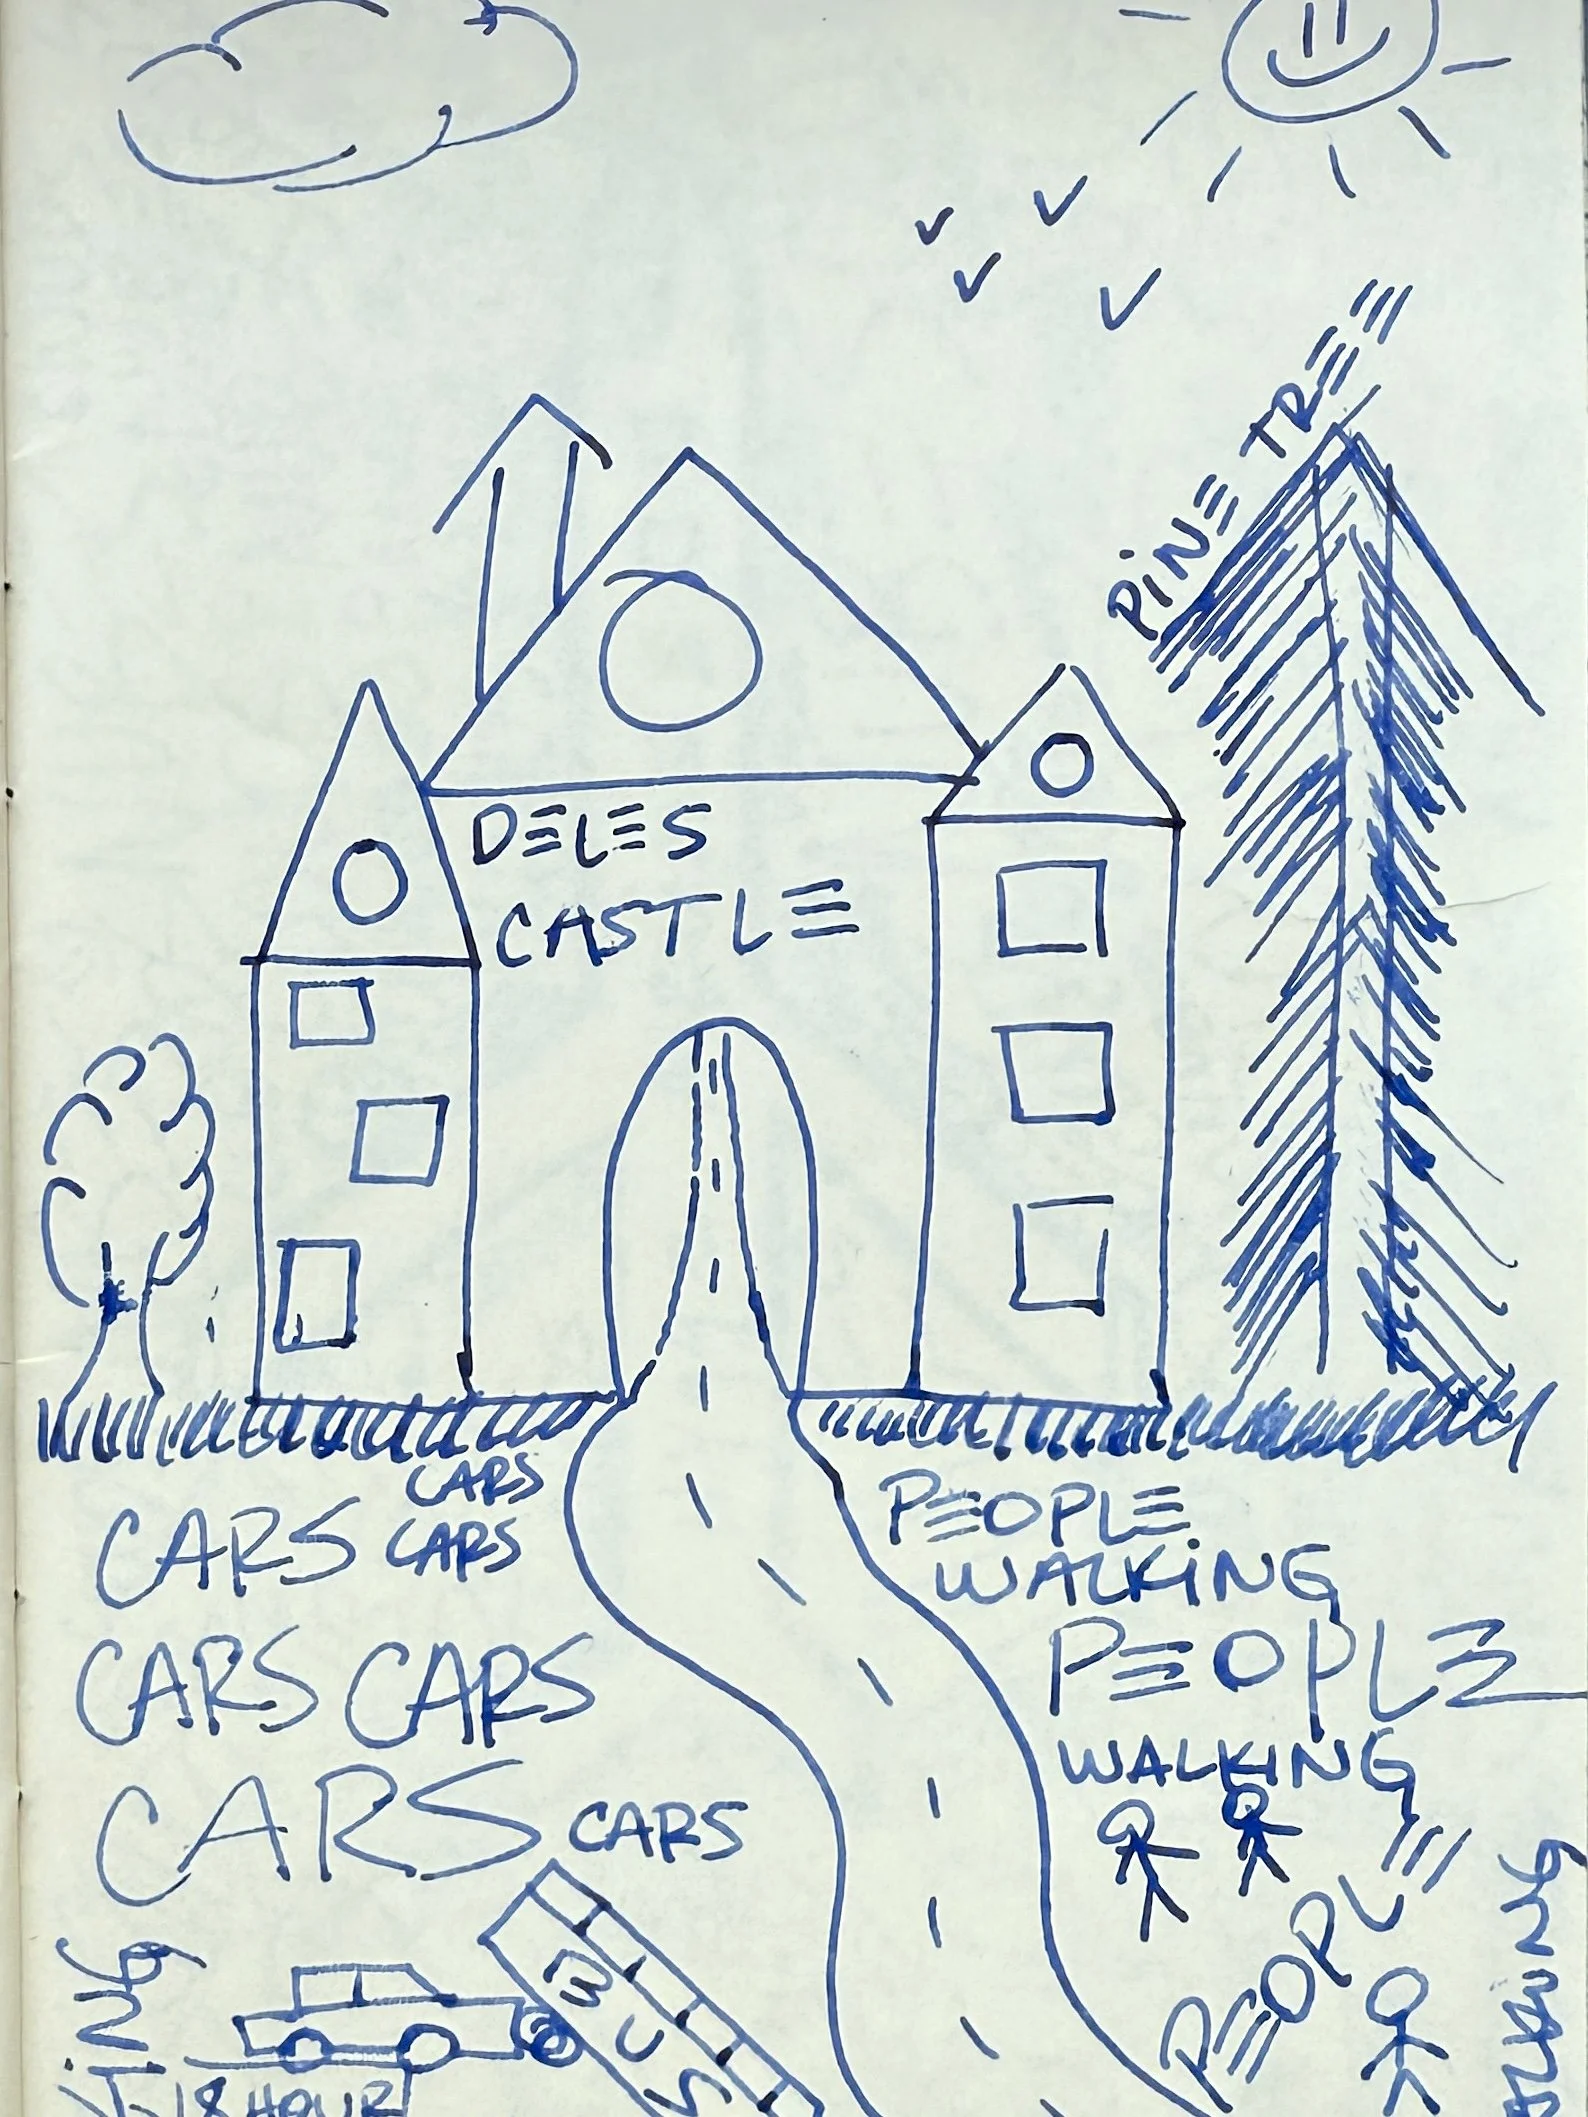 PINE TREE
DELES
CASTLE
CARS
CARS CARS
PEOPLE
WALKING
CARS CARS
PEOPLE
WALKING
CARS CARS
PEOPLE
BUS
18 HOUR